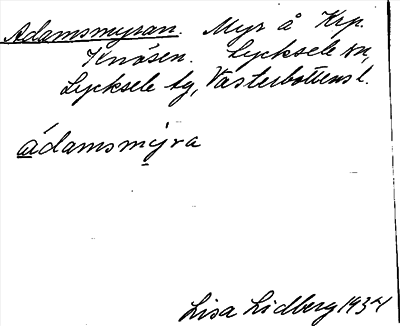 Adamsmyran. Myr å Krp.
Knösen. Lycksele sn,
Lycksele tg, Västerbottens l.
ádamsmỵra
Lisa Lidberg 1934